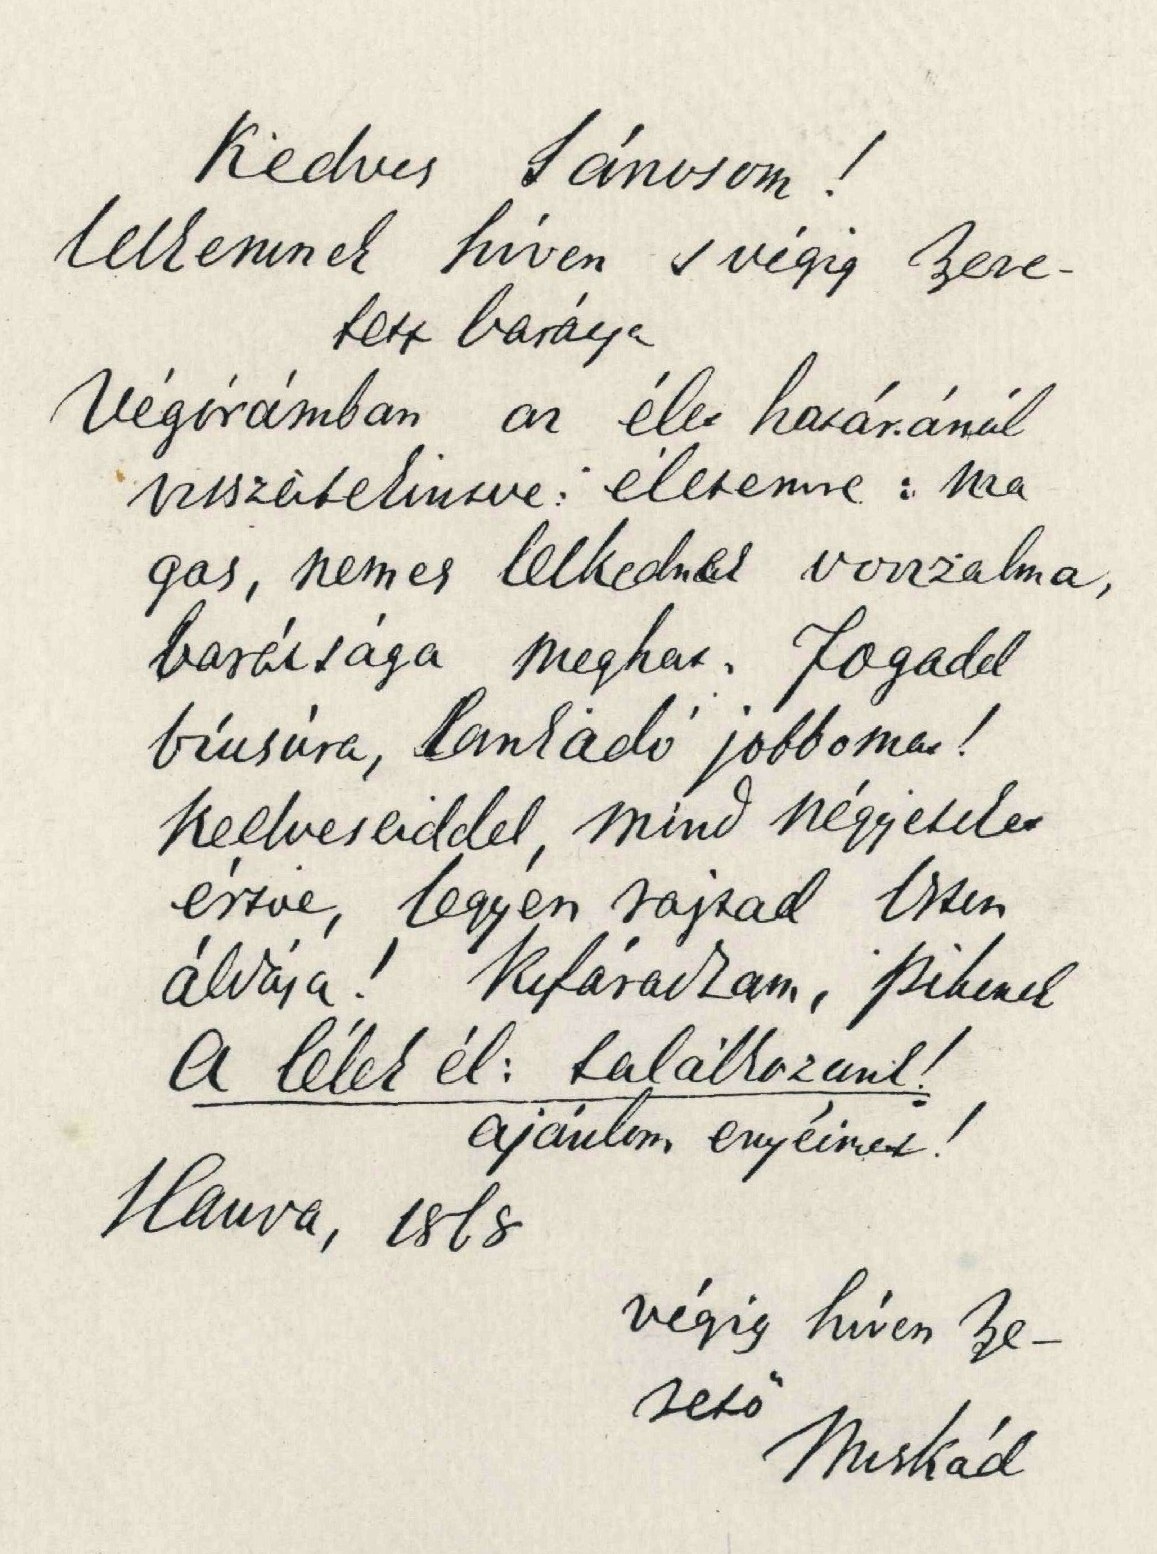 Kedves Jánosom!
lelkemnek híven s végig szere-
tett barátja
Végórámban az élet határánál
visszatekintve: életemre: ma
gas, nemes lelkednek vonzalma,
barátsága meghat. Fogadd
búcsúra, lankadó jobbomat!
kedveseiddel, mind négyeteket
értve, legyen rajtad Isten
áldása! Kifáradtam, pihenek
A lélek él: találkozunk!
ajánlom enyéimet!
Hanva, 1868
végig híven sze-
rető
Miskád